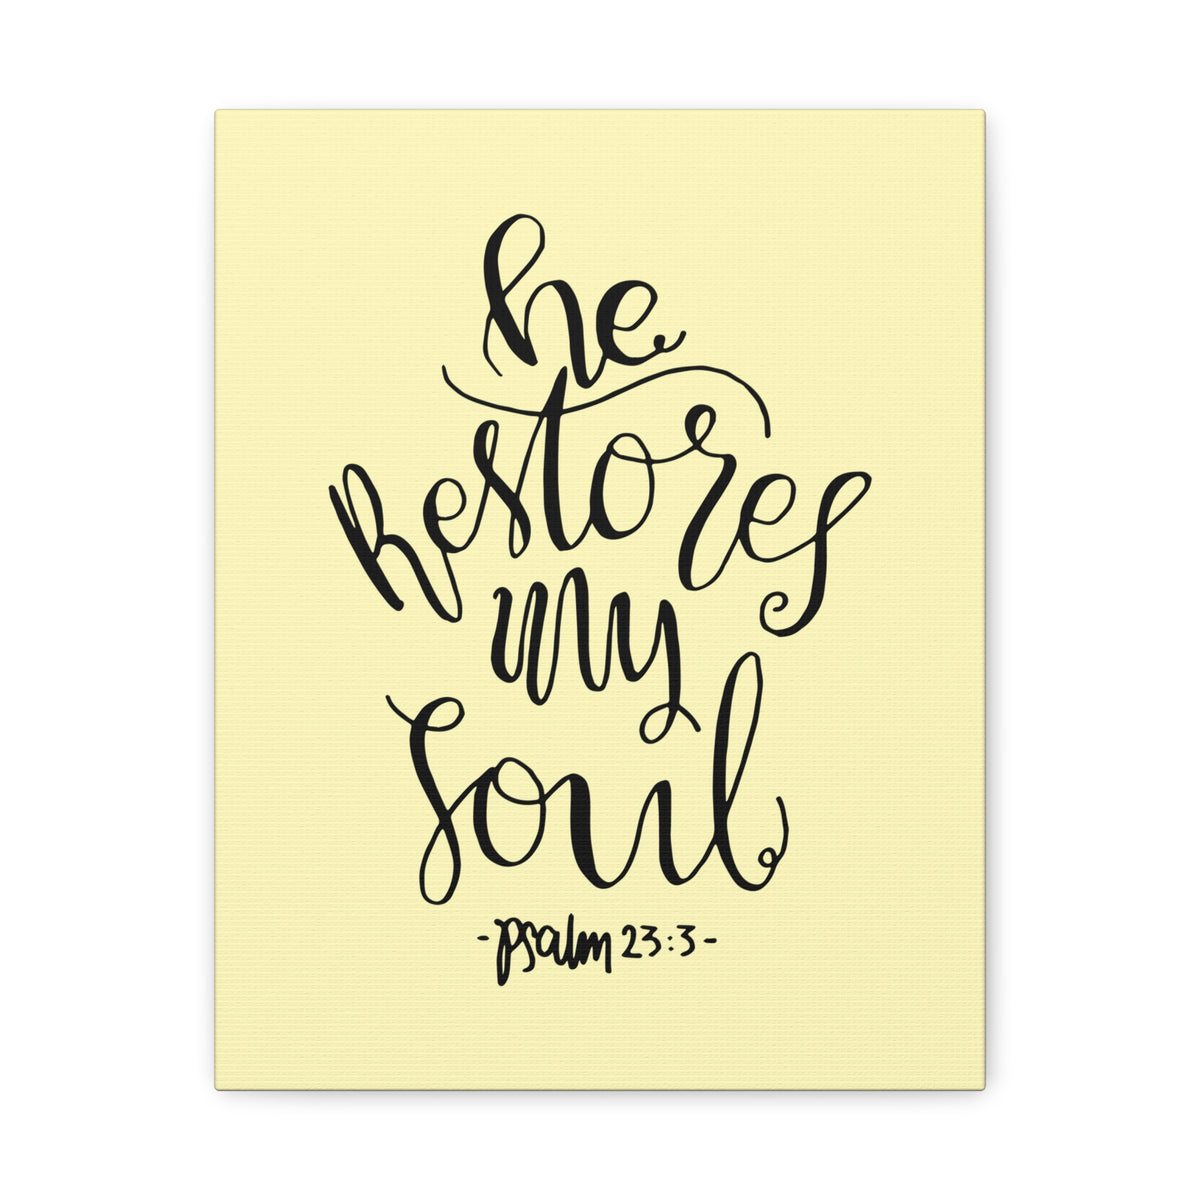 he
Restores
my
Soul
-psalm 23:3-